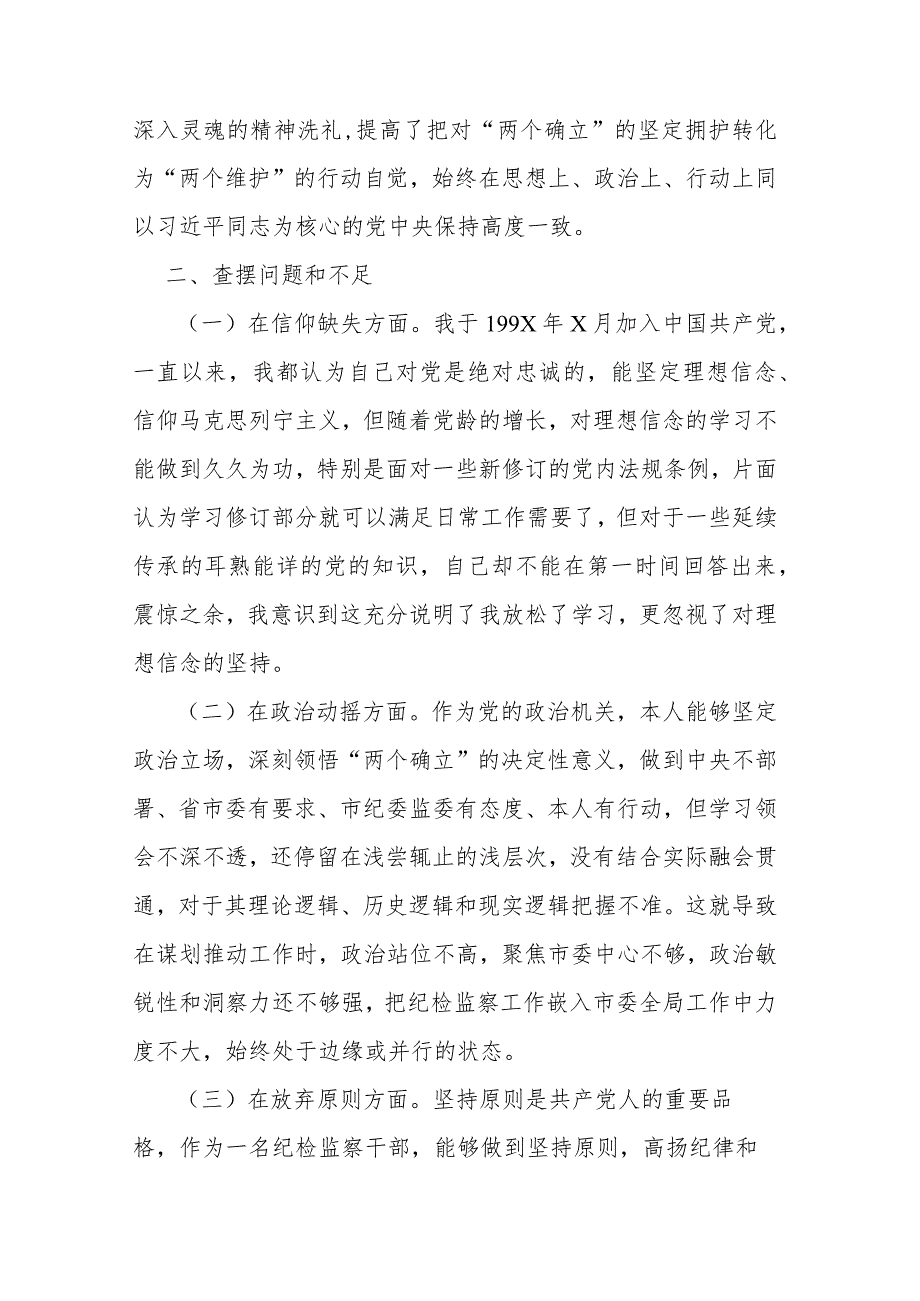 深入灵魂的精神洗礼,提高了把对“两个确立”的坚定拥护转化
为“两个维护”的行动自觉，始终在思想上、政治上、行动上同
以习近平同志为核心的党中央保持高度一致。
二、查摆问题和不足
（一）在信仰缺失方面。我于199X年X月加入中国共产党，
一直以来，我都认为自己对党是绝对忠诚的，能坚定理想信念、
信仰马克思列宁主义，但随着党龄的增长，对理想信念的学习不
能做到久久为功，特别是面对一些新修订的党内法规条例，片面
认为学习修订部分就可以满足日常工作需要了，但对于一些延续
传承的耳熟能详的党的知识，自己却不能在第一时间回答出来，
震惊之余，我意识到这充分说明了我放松了学习，更忽视了对理
想信念的坚持。
（二）在政治动摇方面。作为党的政治机关，本人能够坚定
政治立场，深刻领悟“两个确立”的决定性意义，做到中央不部
署、省市委有要求、市纪委监委有态度、本人有行动，但学习领
会不深不透，还停留在浅尝辄止的浅层次，没有结合实际融会贯
通，对于其理论逻辑、历史逻辑和现实逻辑把握不准。这就导致
在谋划推动工作时，政治站位不高，聚焦市委中心不够，政治敏
锐性和洞察力还不够强，把纪检监察工作嵌入市委全局工作中力
度不大，始终处于边缘或并行的状态。
（三）在放弃原则方面。坚持原则是共产党人的重要品
格，作为一名纪检监察干部，能够做到坚持原则，高扬纪律和